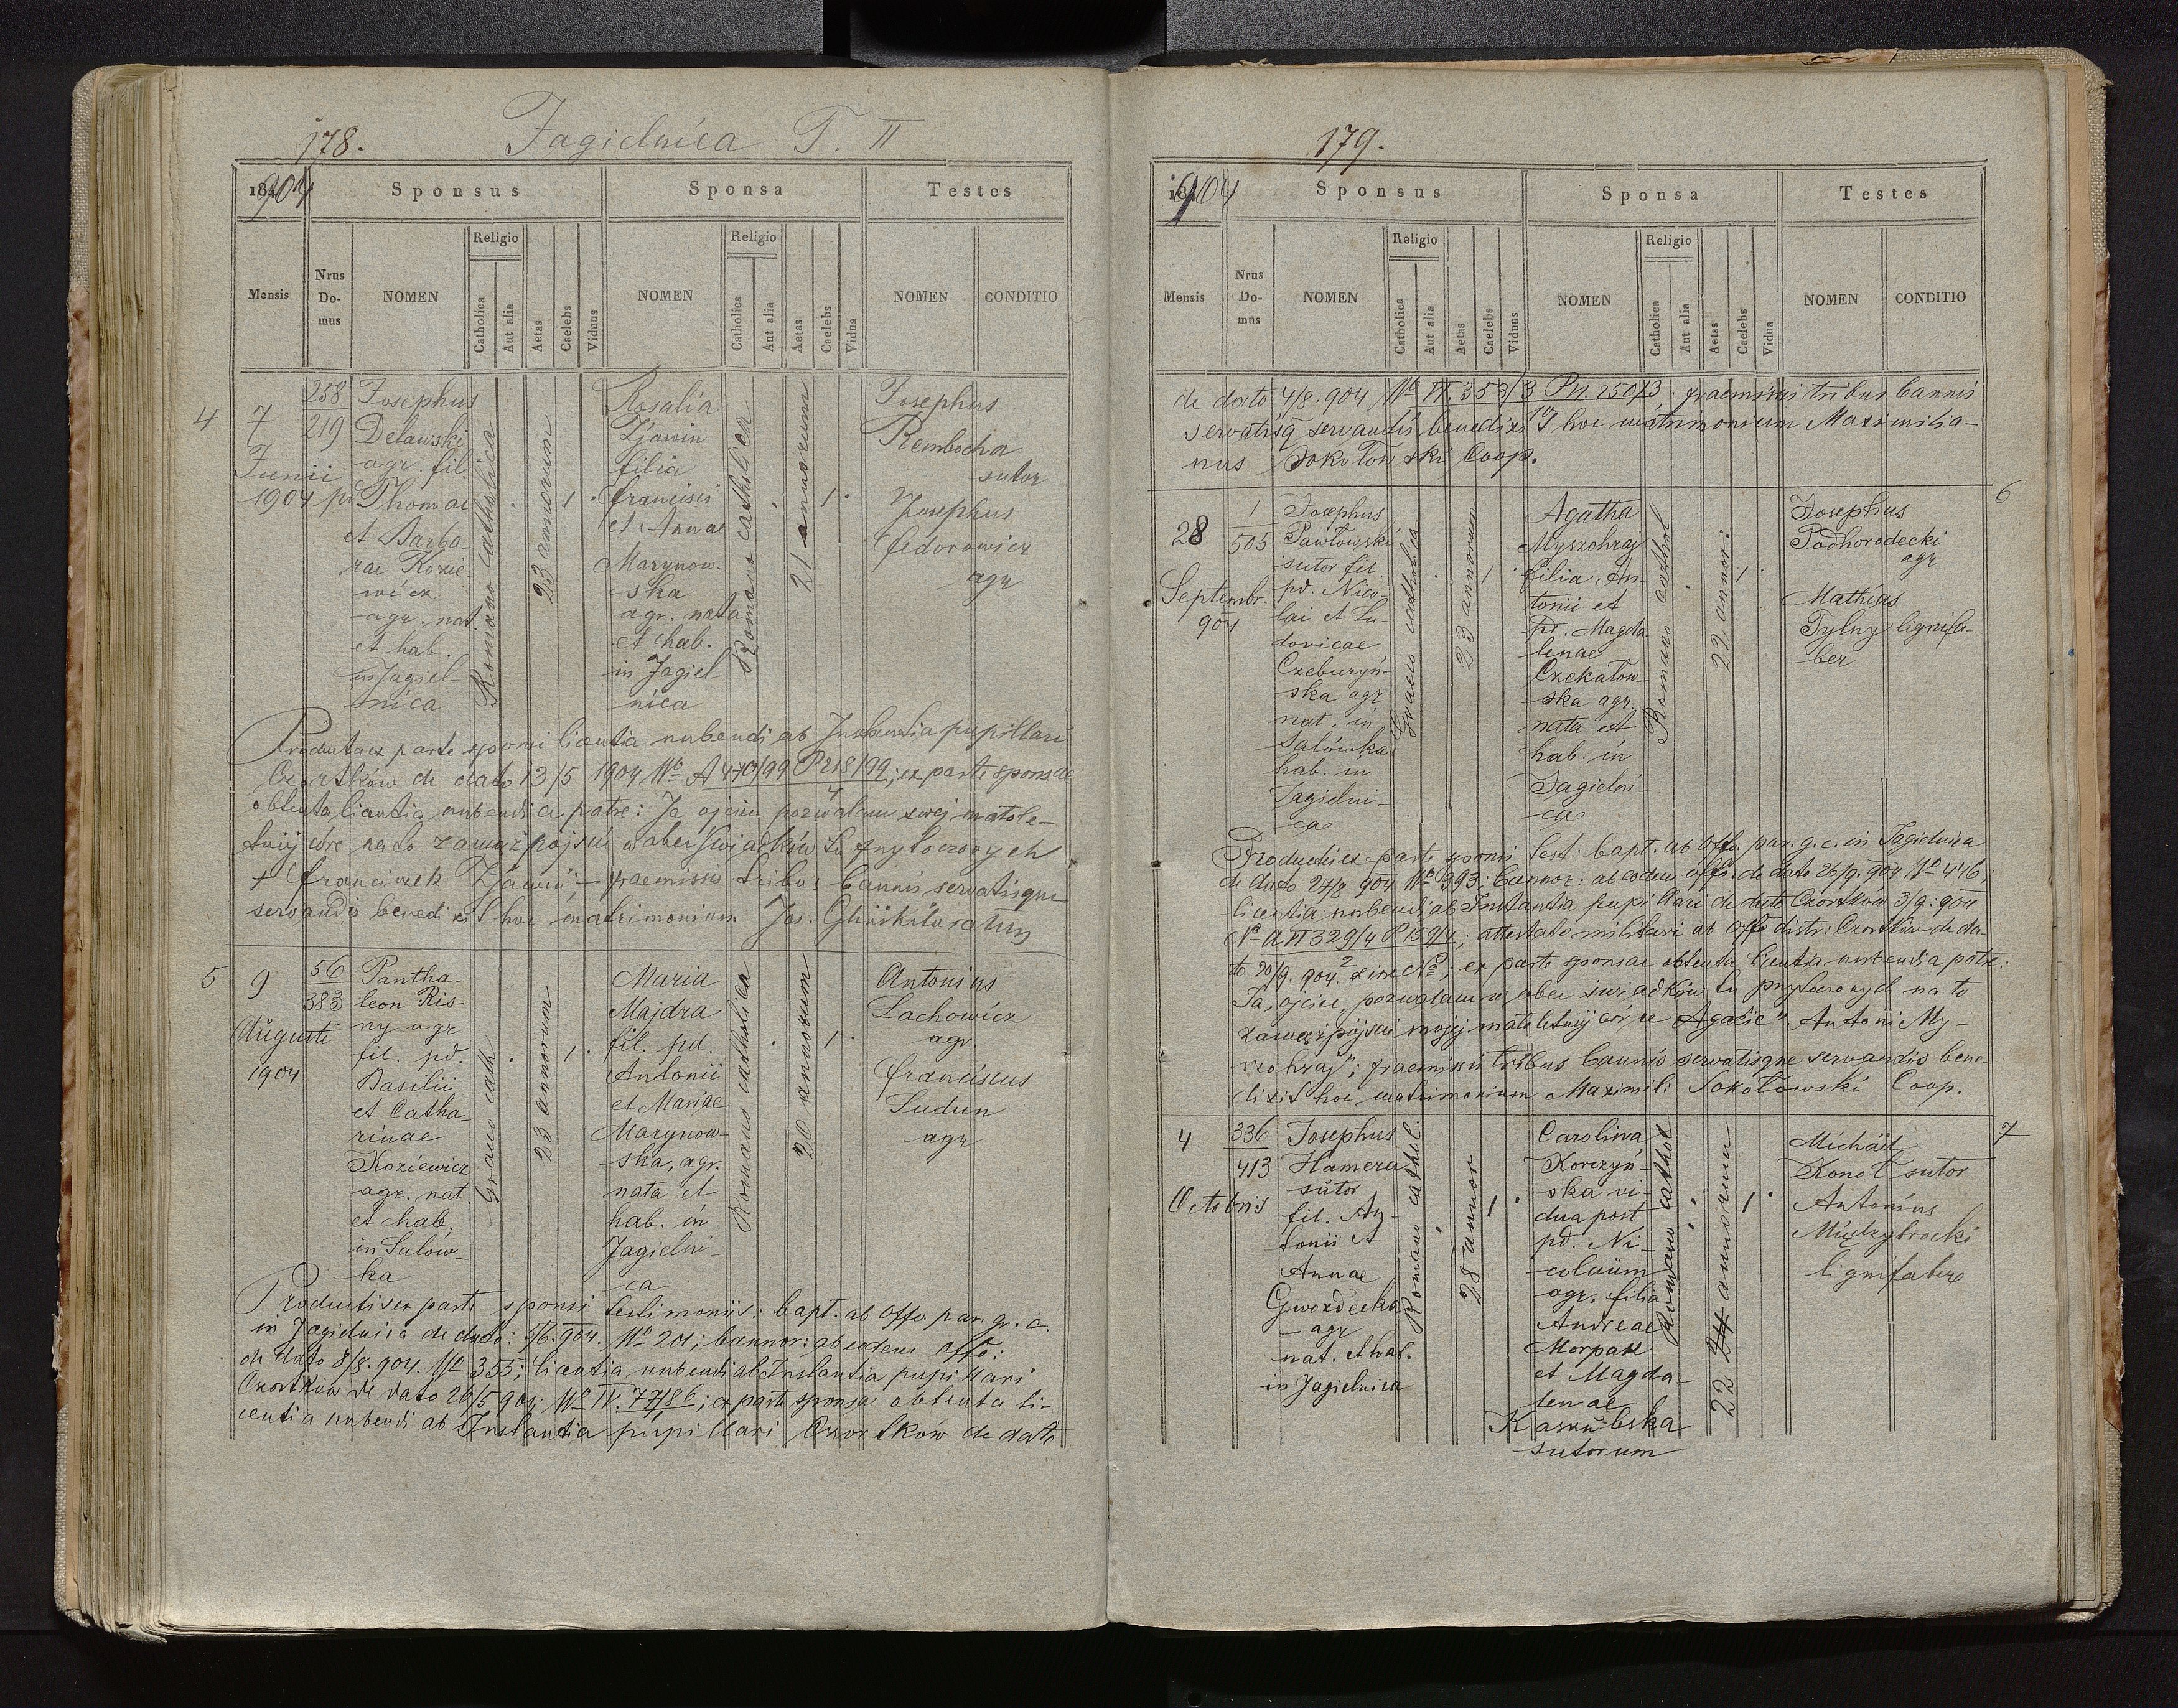 178. Jagielnica T. II
1904 Sponsus Sponsa Testes
Mensis Nrus Do-mus NOMEN Religio Catholica Aut alia Aetas Caelebs Viduus NOMEN Religio Catholica Aut alia Aetas Caelebs Vidua NOMEN CONDITIO
4
7
Junii
1904
258
219
Josephus
Delawski
agr. fil.
pd. Thomae
et Barba-
rae Kozie-
wicz
agr. nat.
et hab.
in Jagiel-
nica
Romano catholica
23 annorum
1
Rosalia
Zjawin
filia
Francisci
et Annae
Marynow-
ska
agr. nata
et hab.
in Jagiel-
nica
Romano catholica
21 annorum
1
Josephus
Rembocha
sutor
Josephus
Fedorowicz
agr
Producta ex parte sponsi licentia nubendi ab Instantia pupillari
Czortków de dato 13/5 1904 No A 470/99 P 218/99 4; ex parte sponsae
obtenta licentia nubendi a patre: Ja ojciec pozwalam swej małole-
tniej córe na to zamąż pójść wobec świadków tu przytoczonych
+ Franciszek Zjawin; praemissis tribus bannis servatisque
servandis benedixit hoc matrimonium Jos.
5
9
Augusti
1904
56
383
Pantha-
leon Ris-
ny agr
fil. pd.
Basilii
et Catha-
rinae
Koziewicz
agr. nat.
et hab.
in Salów-
ka
Graeco cath
23 annorum
1
Maria
Majdra
fil. pd.
Antonii
et Mariae
Marynow-
ska, agr.
nata et
hab. in
Jagielni-
ca
Romano catholica
20 annorum
1
Antonius
Lachowicz
agr.
Franciscus
Sudun
agr
Productis ex parte sponsi testimoniis: bapt. ab offo par. gr. c.
in Jagielnica de dato: 5/6. 904. No 201; bannor: ab eodem offo:
de dato 8/8. 904. No 355; licentia nubendi ab Instantia pupillari
Czortków de dato 26/5 904: No IV. 77/86; ex parte sponsae obtenta li-
centia nubendi ab Instantia pupillari Czortków de dato
179.
1904 Sponsus Sponsa Testes
Mensis Nrus Do-mus NOMEN Religio Catholica Aut alia Aetas Caelebs Viduus NOMEN Religio Catholica Aut alia Aetas Caelebs Vidua NOMEN CONDITIO
de dato 4/8. 904 No IV. 353/3 Pn. 250/3; praemissis tribus bannis
servatisq servandis benedixit hoc matrimonium Maximilia-
nus Sokołowski Coop.
6
28
Septembr.
904
1
505
Josephus
Pawłowski
sutor fil.
pd. Nico-
lai et Lu-
dovicae
Czeburyń-
ska agr
nat. in
Salówka
hab. in
Jagielni-
ca
Graeco catholica
23 annorum
1
Agatha
Myszohraj
filia An-
tonii et
pd. Magda
lenae
Czekałow-
ska agr
nata et
hab. in
Jagielni-
ca
Romano cathol
22 annor:
1
Josephus
Podhorodecki
agr
Mathias
Tylny lignifa-
ber
Productis ex parte sponsi test: bapt. ab offo. par. g. c. in Jagielnica
de dato 27/8 904 No 393; bannor: ab eodem offo. de dato 26/9. 904 No 446;
licentia nubendi ab Instantia pupillari de dato Czortków 3/9: 904
No A IV 329/4 P 159/4 2; attestato militari ab offo distr: Czortków de da-
to 20/9. 904. sine No; ex parte sponsae obtenta licentia nubendi a patre:
Ja, ojciec, pozwalam wobec świadków tu przytoczonych na to
zamąż pójście mojej małoletniej córce Agacie" Antonii My-
szohraj"; praemissis tribus bannis servatisque servandis bene-
dixit hoc matrimonium Maximili: Sokołowski Coop.
7
4
Octobris
336
413
Josephus
Hamera
sutor
fil. An-
tonii et
Annae
Gwozdecka
agr
nat. et hab.
in Jagielnica
Romano cathol.
28 annor
1
Carolina
Korczyń-
ska vi-
dua post
pd. Ni-
colaum
agr. filia
Andreae
Morpak
et Magda-
lenae
Kaszubska
sutorum
Romano cathol
22 24 annorum
1
Michael
Konot sutor
Antonius
Międzybrocki
lignifaber